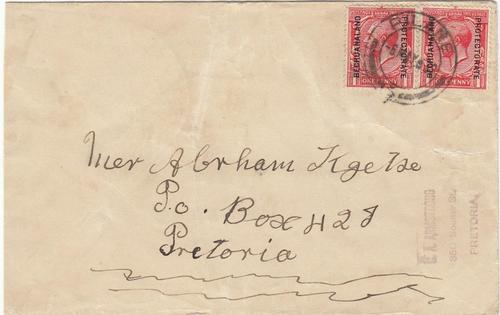 BECHUANALAND
PROTECTORATE
ONE PENNY
BECHUANALAND
PROTECTORATE
ONE PENNY
Mer Abrham Kgetse
P.o. Box 428
Pretoria
PRETORIA